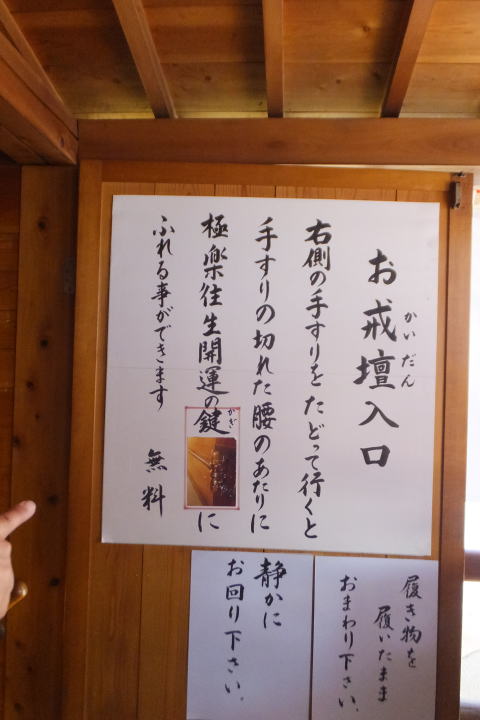 お戒壇入口
かいだん
右側の手すりをたどって行くと
手すりの切れた腰のあたりに
極楽往生開運の鍵に
かぎ
ふれる事ができます
無料
履き物を
履いたまま
おまわり下さい。
静かに
お回り下さい。